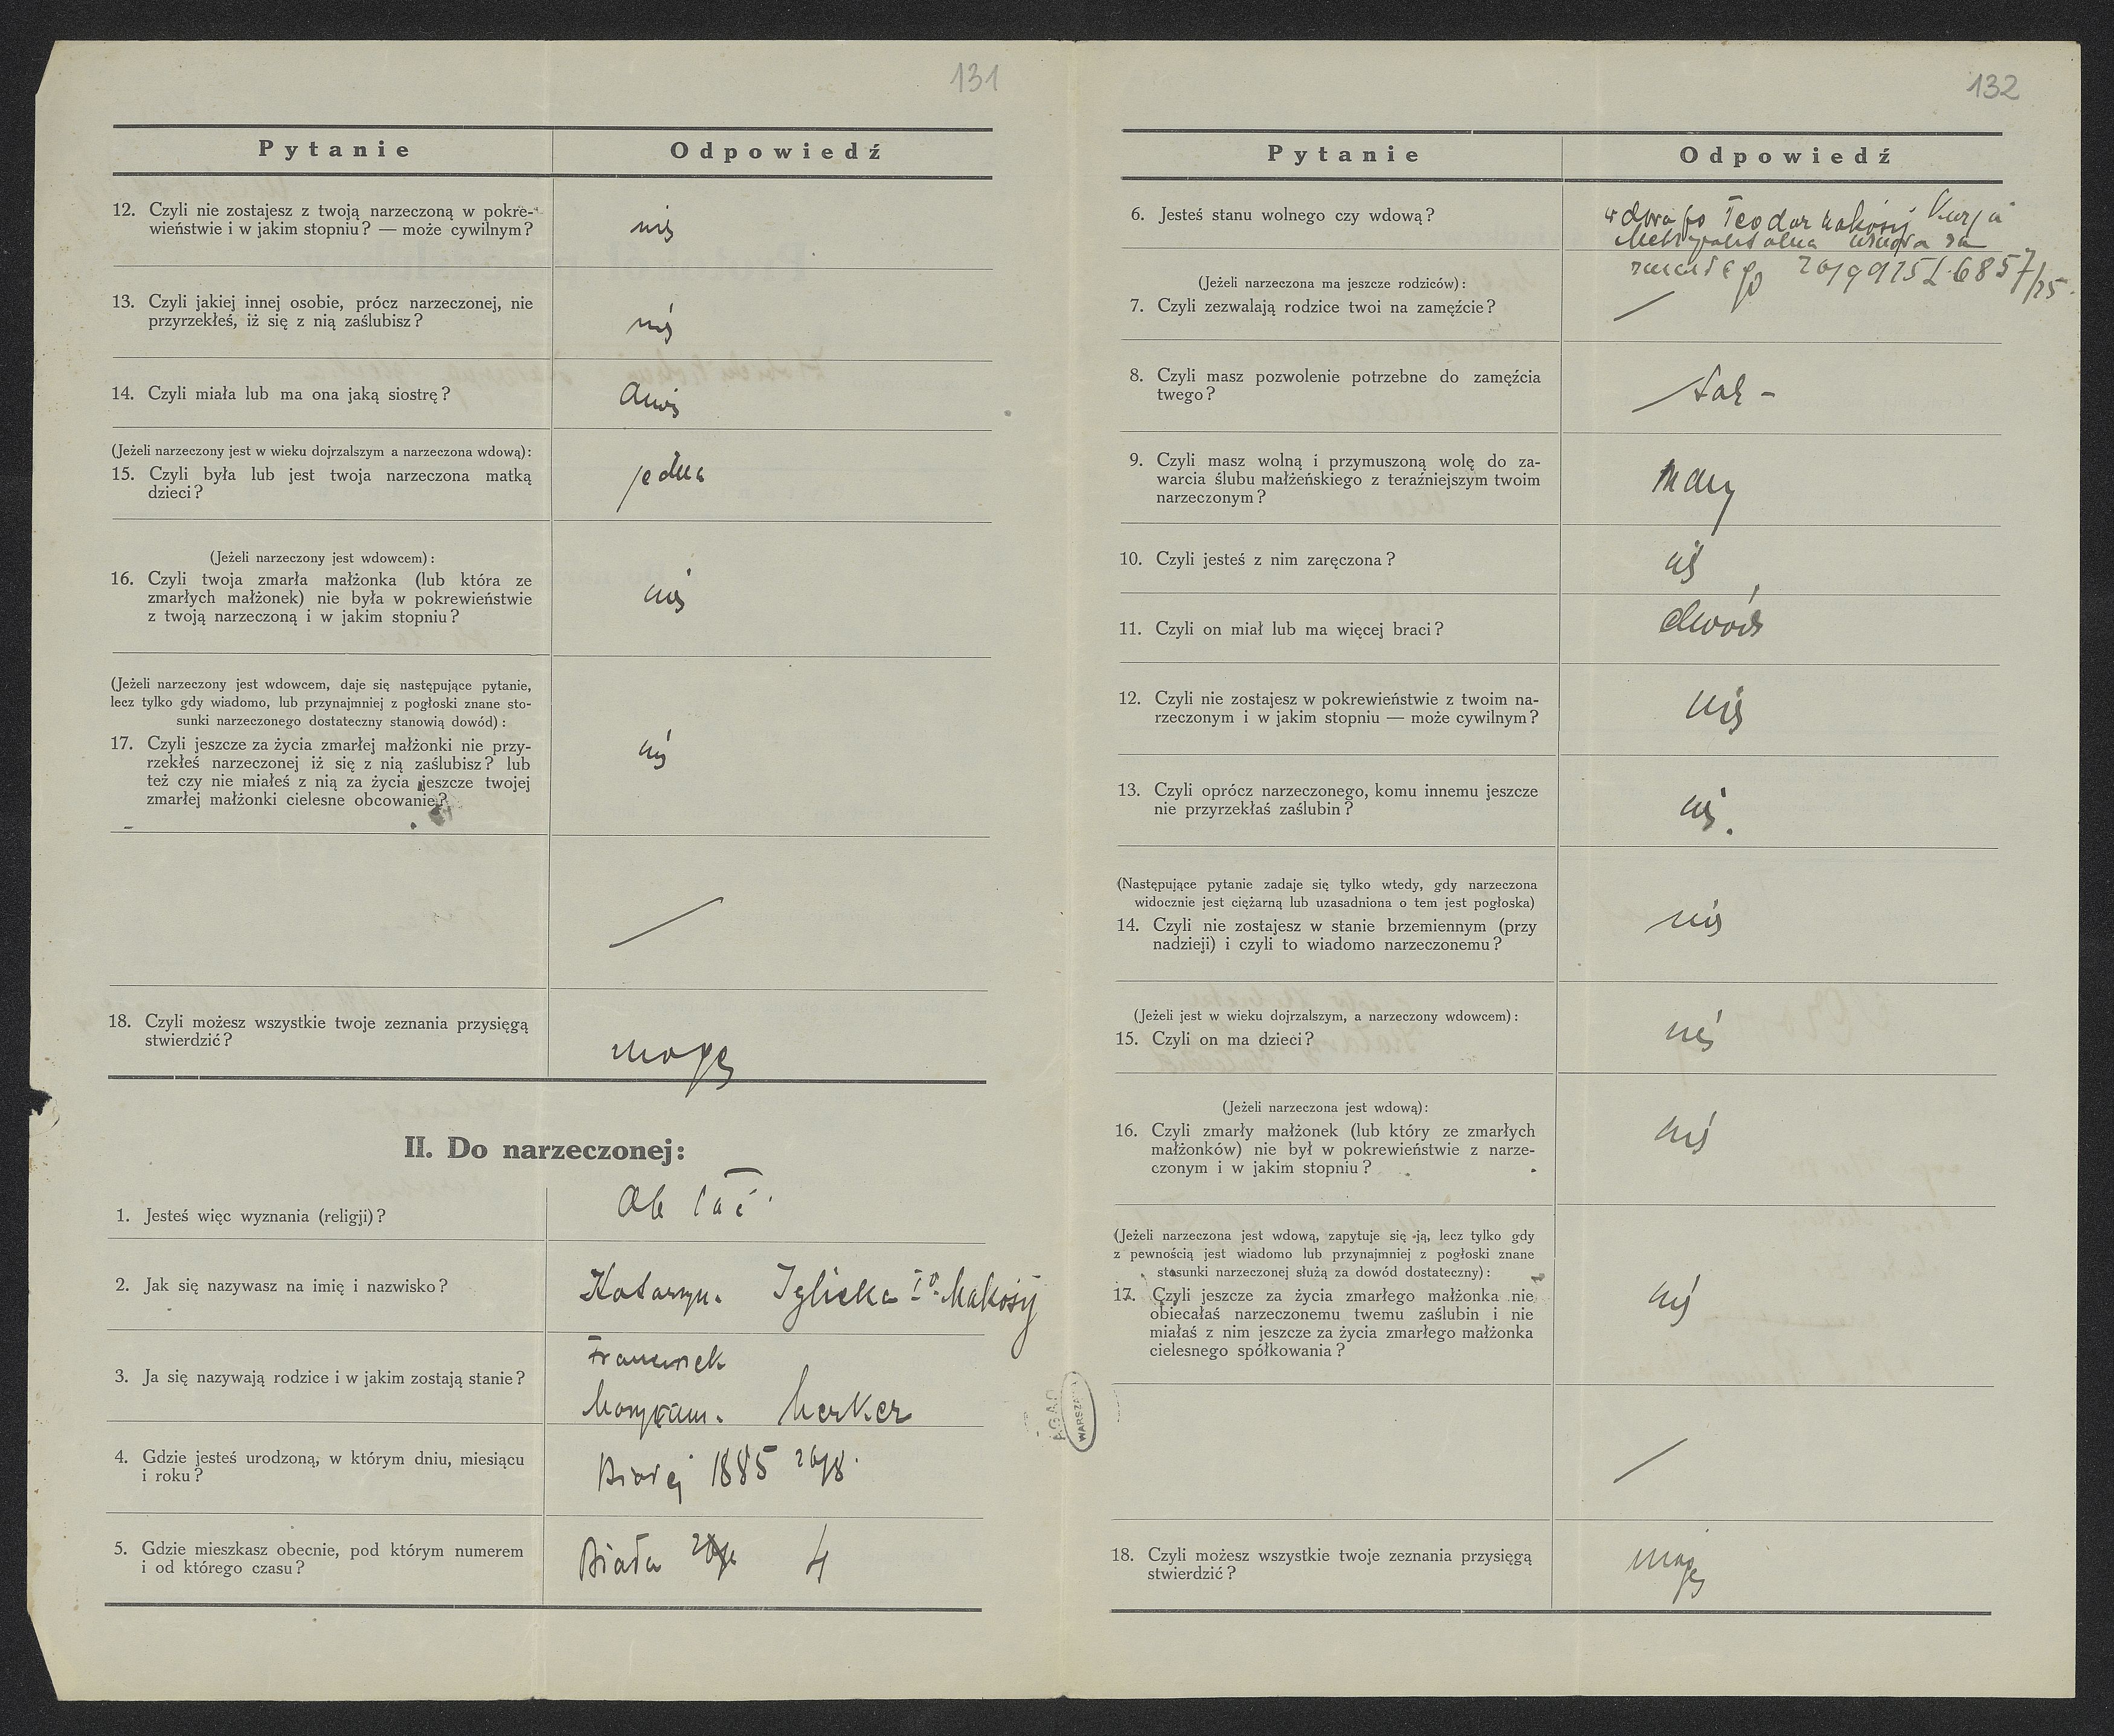 131
Pytanie
Odpowiedź
12. Czyli nie zostajesz z twoją narzeczoną w pokre-
wieństwie i w jakim stopniu? — może cywilnym?
nie
13. Czyli jakiej innej osobie, prócz narzeczonej, nie
przyrzekłeś, iż się z nią zaślubisz?
nie
14. Czyli miała lub ma ona jaką siostrę?
(Jeżeli narzeczony jest w wieku dojrzalszym a narzeczona wdową):
15. Czyli była lub jest twoja narzeczona matką
dzieci?
jedna
(Jeżeli narzeczony jest wdowcem):
16. Czyli twoja zmarła małżonka (lub która ze
zmarłych małżonek) nie była w pokrewieństwie
z twoją narzeczoną i w jakim stopniu?
nie
(Jeżeli narzeczony jest wdowcem, daje się następujące pytanie,
lecz tylko gdy wiadomo, lub przynajmniej z pogłoski znane sto-
sunki narzeczonego dostateczny stanowią dowód):
17. Czyli jeszcze za życia zmarłej małżonki nie przy-
rzekłeś narzeczonej iż się z nią zaślubisz? lub
też czy nie miałeś z nią za życia jeszcze twojej
zmarłej małżonki cielesne obcowanie?
nie
18. Czyli możesz wszystkie twoje zeznania przysięgą
stwierdzić?
mogę
II. Do narzeczonej:
1. Jesteś więc wyznania (religji)?
2. Jak się nazywasz na imię i nazwisko?
Katarzyn. Iglicka I° Makosij
3. Ja się nazywają rodzice i w jakim zostają stanie?
Franciszek
Maryann. Merker
4. Gdzie jesteś urodzoną, w którym dniu, miesiącu
i roku?
Białej 1885 20/8.
5. Gdzie mieszkasz obecnie, pod którym numerem
i od którego czasu?
Biała 4
AGAD
WARSZAWA
132
Pytanie
Odpowiedź
6. Jesteś stanu wolnego czy wdową?
wdowa po Teodor Makosij Kurja
Metropolitalna uznała za
zmarłego 20/9 925 L. 6857/25.
(Jeżeli narzeczona ma jeszcze rodziców):
7. Czyli zezwalają rodzice twoi na zamęźcie?
8. Czyli masz pozwolenie potrzebne do zamęźcia
twego?
tak -
9. Czyli masz wolną i przymuszoną wolę do za-
warcia ślubu małżeńskiego z teraźniejszym twoim
narzeczonym?
mam
10. Czyli jesteś z nim zaręczona?
nie
11. Czyli on miał lub ma więcej braci?
dwóch
12. Czyli nie zostajesz w pokrewieństwie z twoim na-
rzeczonym i w jakim stopniu — może cywilnym?
nie
13. Czyli oprócz narzeczonego, komu innemu jeszcze
nie przyrzekłaś zaślubin?
nie.
(Następujące pytanie zadaje się tylko wtedy, gdy narzeczona
widocznie jest ciężarną lub uzasadniona o tem jest pogłoska)
14. Czyli nie zostajesz w stanie brzemiennym (przy
nadzieji) i czyli to wiadomo narzeczonemu?
nie
(Jeżeli jest w wieku dojrzalszym, a narzeczony wdowcem):
15. Czyli on ma dzieci?
nie
(Jeżeli narzeczona jest wdową):
16. Czyli zmarły małżonek (lub który ze zmarłych
małżonków) nie był w pokrewieństwie z narze-
czonym i w jakim stopniu?
nie
(Jeżeli narzeczona jest wdową, zapytuje się ją, lecz tylko gdy
z pewnością jest wiadomo lub przynajmniej z pogłoski znane
stosunki narzeczonej służą za dowód dostateczny):
17. Czyli jeszcze za życia zmarłego małżonka nie
obiecałaś narzeczonemu twemu zaślubin i nie
miałaś z nim jeszcze za życia zmarłego małżonka
cielesnego spółkowania?
nie
18. Czyli możesz wszystkie twoje zeznania przysięgą
stwierdzić?
mogę